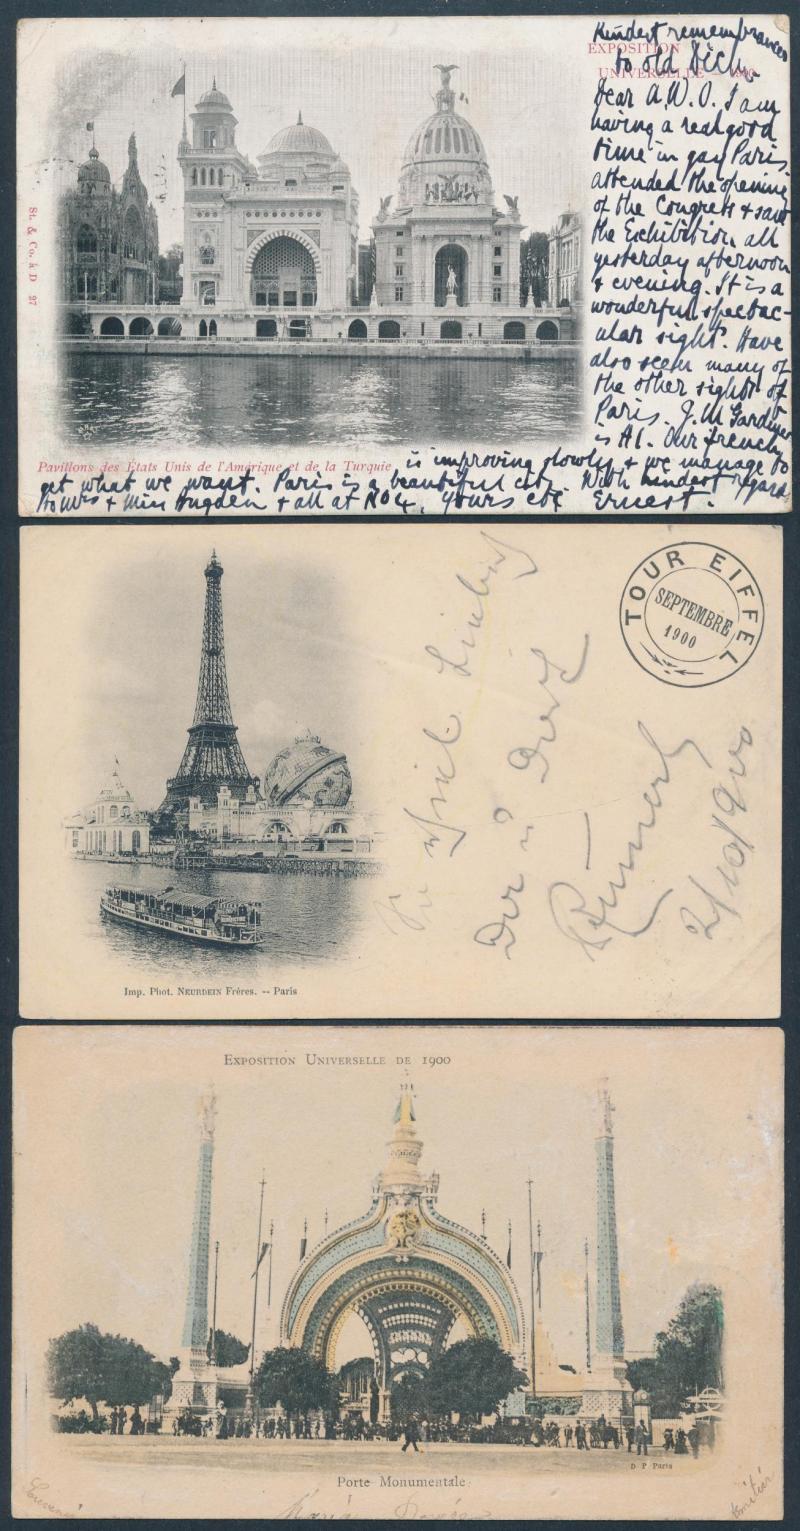 Kindest remembrances
EXPOSITION
to old Dick.
UNIVERSELLE – 1900
Dear A.W.O. I am
having a real good
time in gay Paris.
attended the opening
of the Congress & saw
the Exhibition all
yesterday afternoon
& evening. It is a
wonderful spectac-
ular sight. Have
also seen many of
the other sights of
Paris. J.M. Gardiner
is A1. Our french
is improving slowly & we manage to
get what we want. Paris is a beautiful city. With kindest regards
to Mrs & Miss & all at No 4. Yours etc Ernest.
St. & Co. à D 27
Pavillons des États Unis de l'Amérique et de la Turquie
TOUR EIFFEL
SEPTEMBRE
1900
2/10/900
Imp. Phot. NEURDEIN Frères. -- Paris
EXPOSITION UNIVERSELLE DE 1900
D P Paris
Porte Monumentale
Souvenir